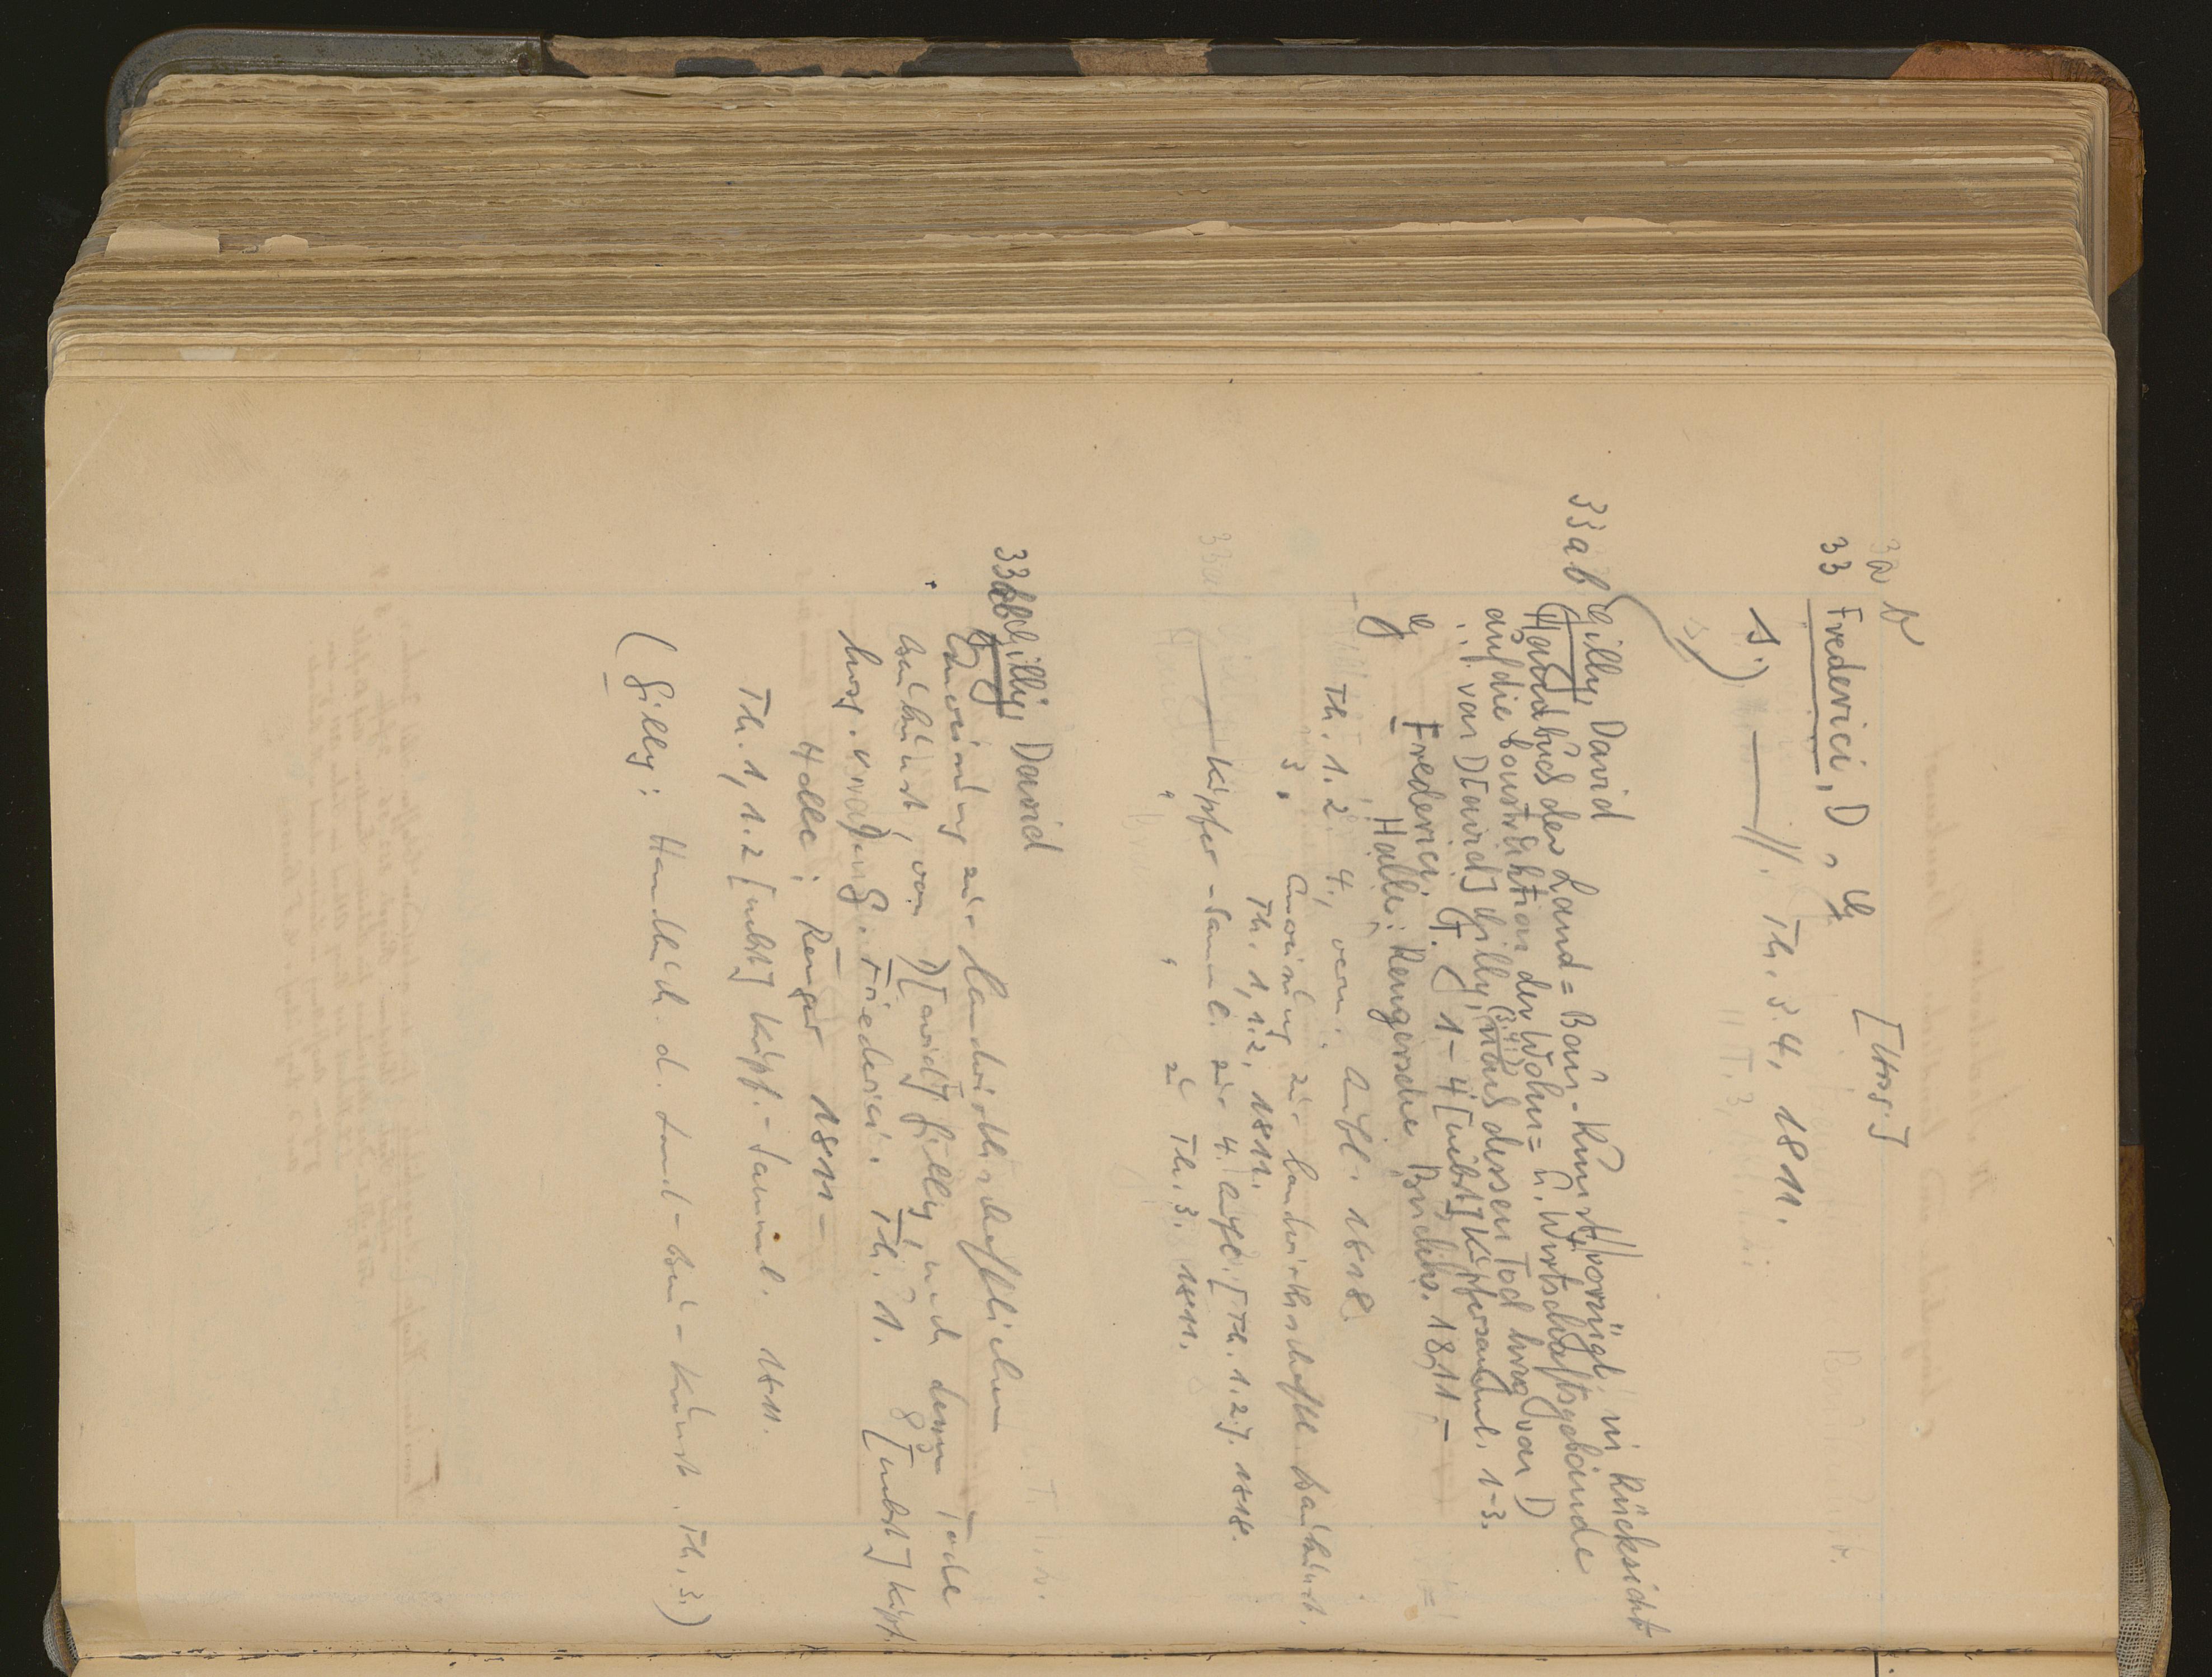 3a
33 Friederici, D. G. [Hrsg.]
1.) —//. Th. 3.4, 1811.
33ab Gilly, David
Handbuch der Land=Bau-Kunst, vorzügl. in Rücksicht
auf die Construktion der Wohn= u. Wirtschaftsgebäude
... von D[avid] Gilly, (3.4:) nach dessen Tod hrsg von D
G Friederici. T. 1-4 [nebst] Kupfersamml. 1-3.
Halle: Rengersche Buchh. 1811-
Th. 1. 2. 4, verm. Aufl. 1818.
3. Anweisung zur landwirthschaftl. Baukunst.
Th. 1, 1.2, 1811.
Kupfer-Samml. zur 4. Aufl. [Th. 1.2]. 1818.
" " zu Th. 3. 1811.
33ab Gilly, David
Anweisung zur landwirthschaftlichen
Baukunst, von D[avid] Gilly, nach dessen Tode
hrsg. von D. G. Friederici. Th. 1. [nebst] Kupf.
Halle: Renger 1811-
Th. 1, 1.2 [nebst] Kupf.-Samml. 1811.
(Gilly: Handbuch d. Land-Bau-Kunst. Th. 3.)